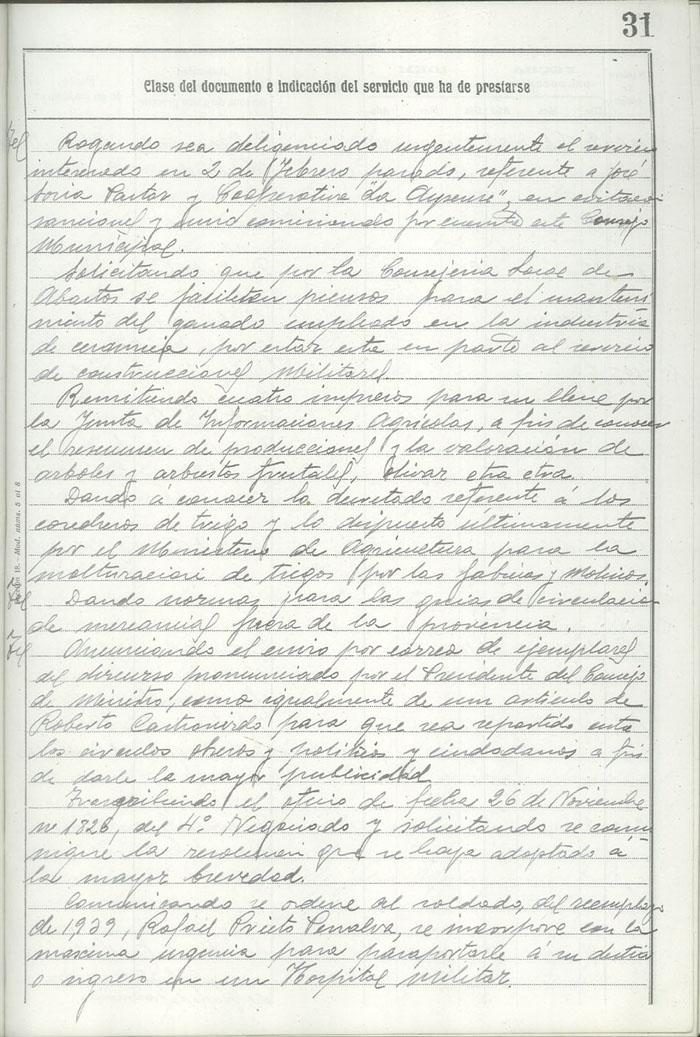 31
Clase del documento e indicación del servicio que ha de prestarse
Tel Rogando sea deligenciado urgentemente el servicio
interesado en 2 de Febrero pasado, referente a José
Soria Pastor y Cooperativa "La Aspense", en evitación
sanciones y envio comisionado por cuenta este Consejo
Municipal.
Solicitando que por la Consejeria Local de
Abastos se faciliten piensos para el manteni
miento del ganado empleado en la industria
de ceramica, por estar esta en parte al servicio
de construcciones Militares
Remitiendo cuatro impresos para su llene por
la Junta de Informaciones Agrícolas, a fin de conocer
el resumen de producciones y la valoración de
arboles y arbustos frutales, olivar etra etra.
Dando á conocer lo decretado referente á los
cosecheros de trigo y lo dispuesto últimamente
por el Ministerio de Agricultura para la
molturacion de trigos por las fabricas y Molinos.
Tel Dando normas para las guias de circulacion
de mercancias fuera de la provincia.
Tel Anunciando el envio por correo de ejemplares
del discurso pronunciado por el Presidente del Consejo
de Ministros, como igualmente de un articulo de
Roberto Castrovido para que sea repartido entre
los circulos obreros y politicos y ciudadanos a fin
de darle la mayor publicidad
Trascribiendo el oficio de fecha 26 de Noviembre
nº 1826, del 4º Negociado y solicitando se comu
nique la resolucion que se haya adoptado á
la mayor brevedad.
Comunicando se ordene al soldado, del reemplazo
de 1939, Rafael Prieto Penalva, se incorpore con la
maxima urgencia para pasaportarle á su destino
o ingreso en un Hospital Militar.
Mod. núm. 5 al 8